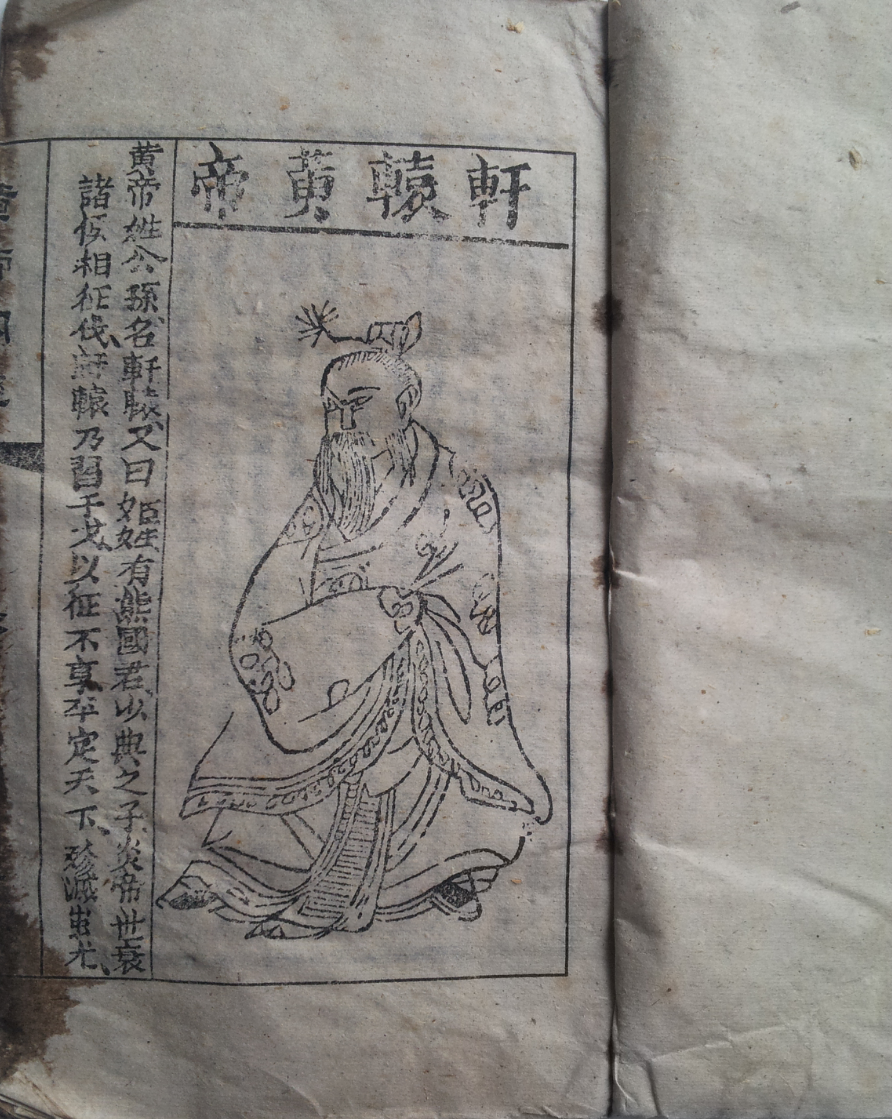 軒轅黄帝
黄帝姓公孫名軒轅又曰姬姓有熊國君以典之子炎帝世衰
諸侯相征伐軒轅乃習干戈以征不享平定天下殄滅蚩尤